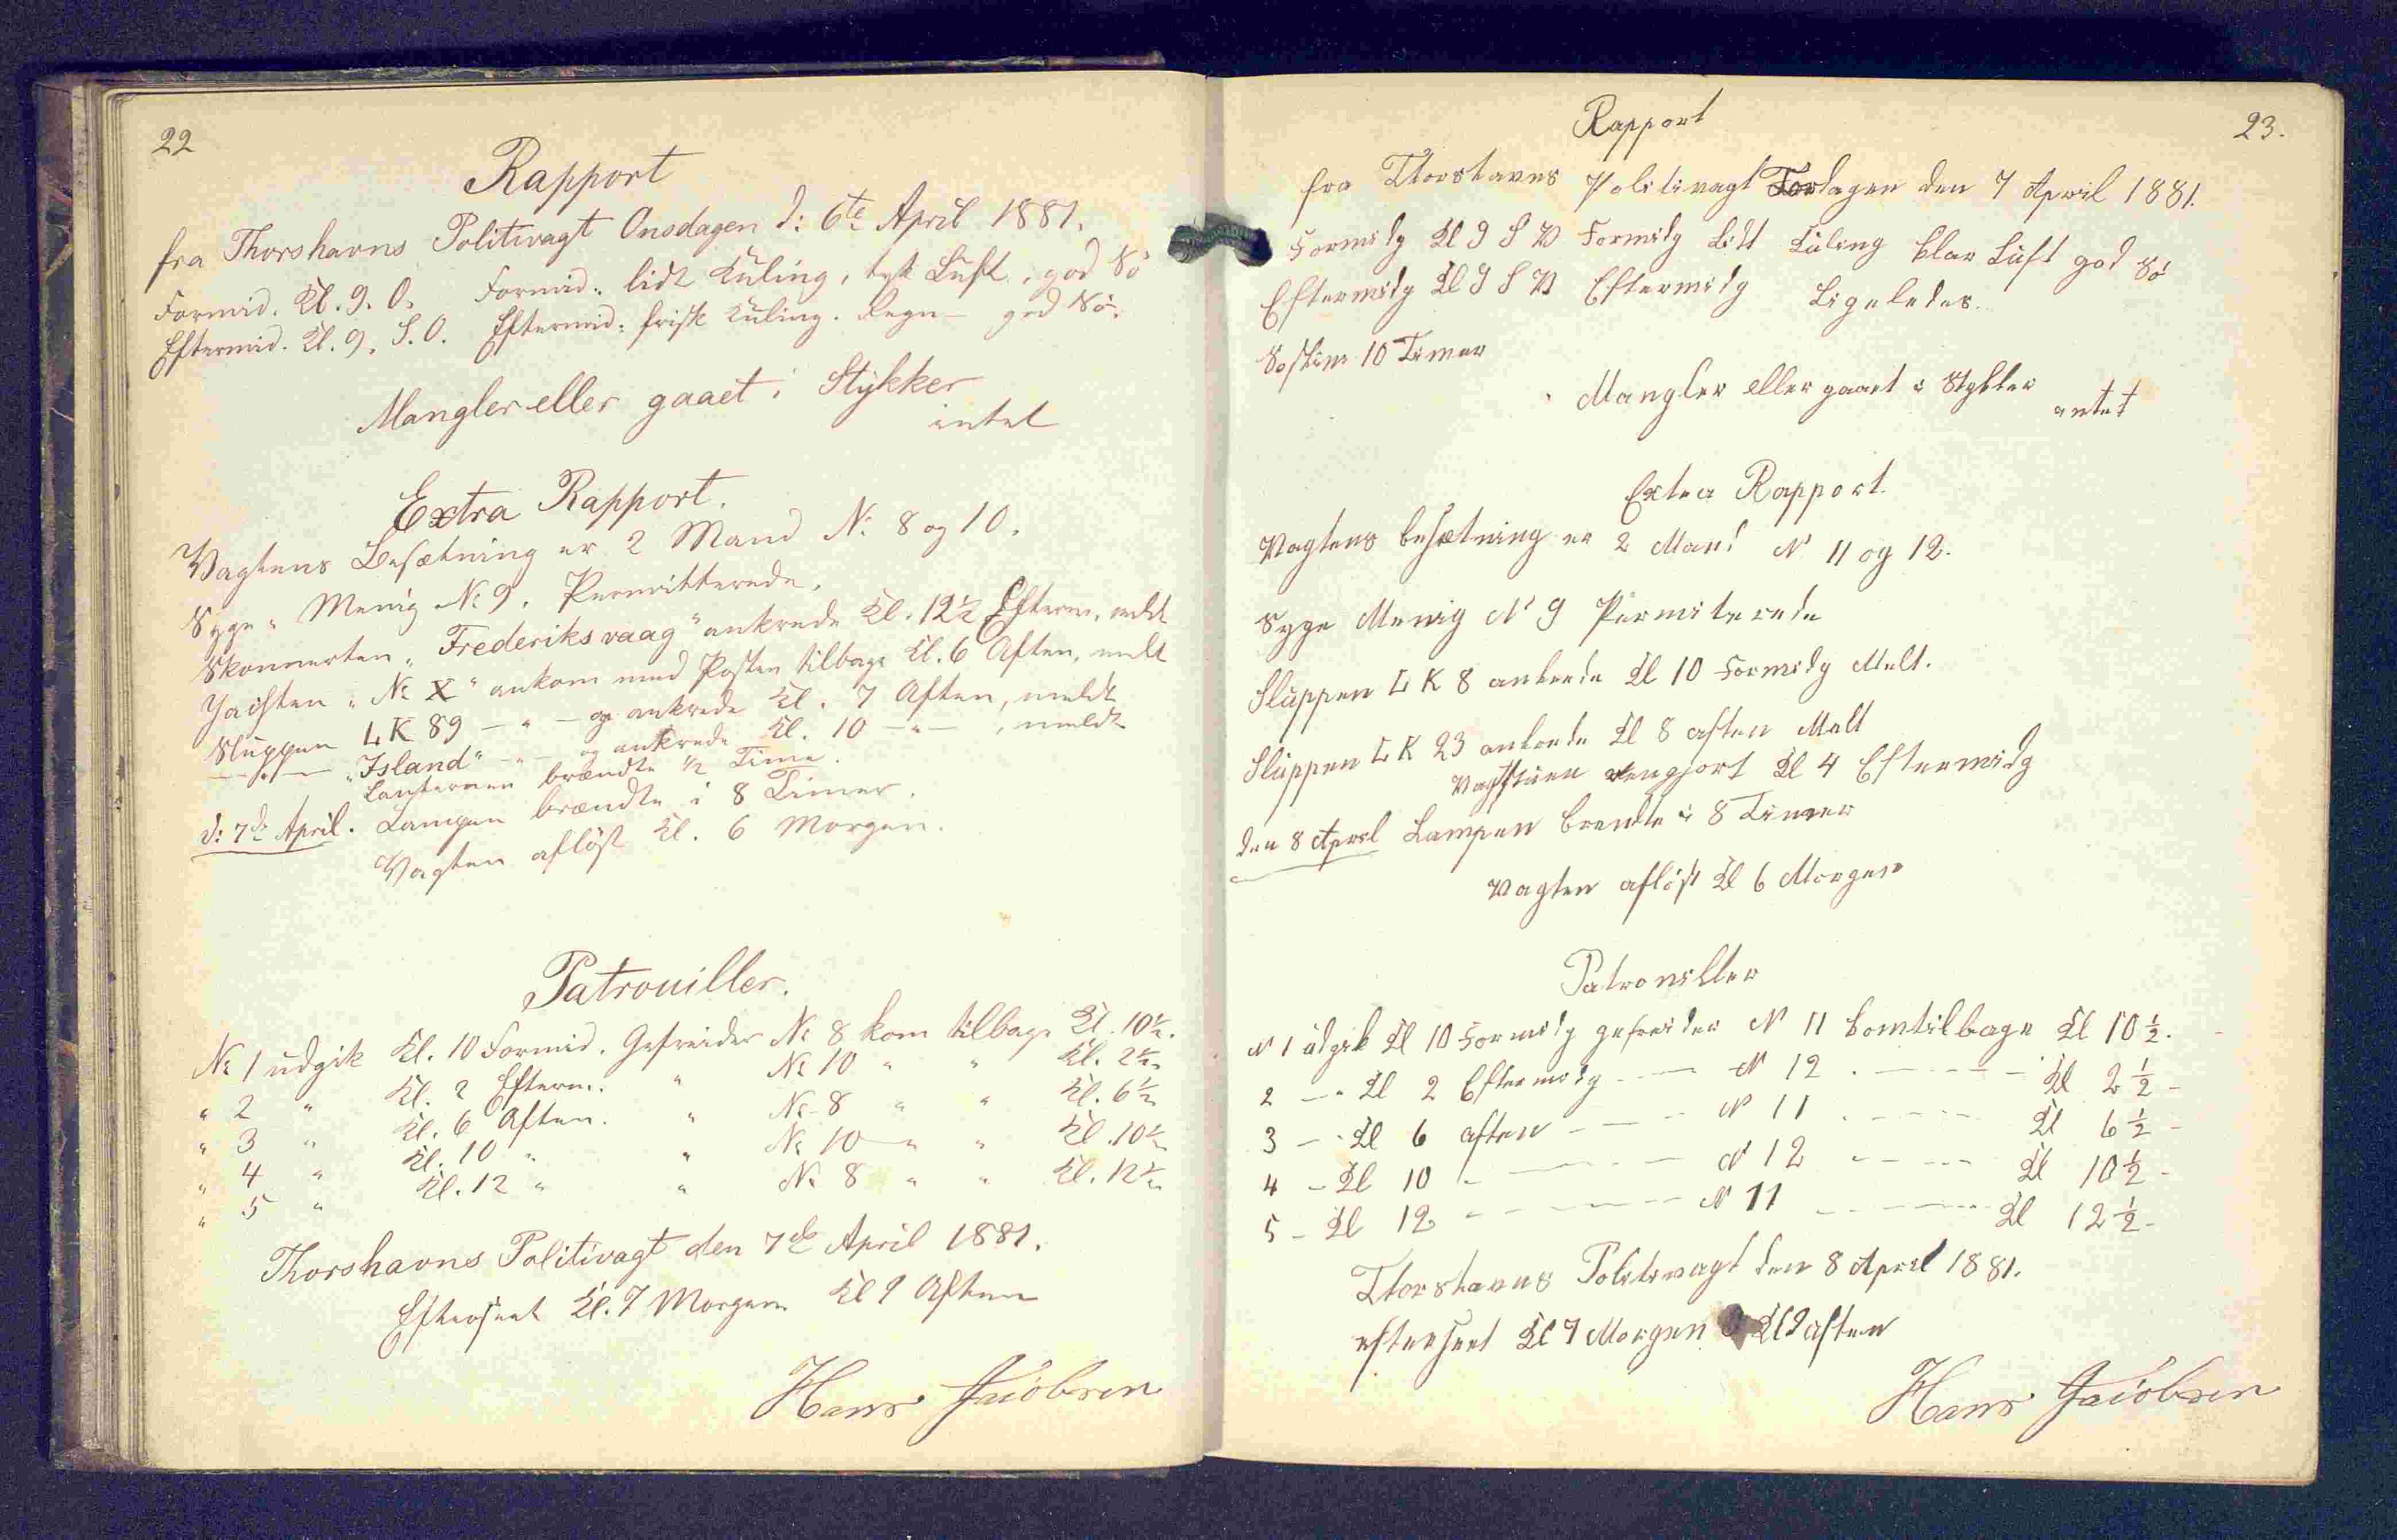 22
Rapport
fra Thorshavns Politivagt Onsdagen d: 6te April 1881.
Formid. Kl. 9. O. Formid. lidt Kuling, tyk Luft, god Sö
Eftermid. Kl. 9. S.O. Eftermid: frisk Kuling. Regn - god Sö.
Mangler eller gaaet i Stykker
intet
Extra Rapport.
Vagtens Besætning er 2 Mand No 8 og 10.
Syge. Menig No 9. Permitterede.
Skonnerten "Frederiksvaag" ankrede Kl. 12½ Efterm, meldt
Jagten "No X" ankom med Posten tilbage Kl. 6 Aften, meldt
Sluppen LK 89 - " - og ankrede Kl. 7 Aften, meldt
- " - "Island" - " - og ankrede Kl. 10 - " - , meldt
Lanternen brændte ½ Time.
d: 7de April. Lampen brændte i 8 Timer.
Vagten aflöst Kl. 6 Morgen.
Patrouiller.
No 1 udgik Kl. 10 Formid. Gefreider No 8 kom tilbage Kl. 10½.
" 2 " Kl. 2 Efterm. " No 10 " " Kl. 2½
" 3 " Kl. 6 Aften. " No 8 " " Kl. 6½
" 4 " Kl. 10 " " No 10 " " Kl. 10½
" 5 " Kl. 12 " " No 8 " " Kl. 12½
Thorshavns Politivagt den 7de April 1881.
Efterseet Kl. 7 Morgen Kl 9 Aften
Hans Jacobsen
23.
Rapport
fra Thorshavns Politivagt Torsdagen den 7 April 1881.
Formidg Kl 9 S V Formidg Lidt Kuling klar Luft god Sö
Eftermidg Kl 9 S V Eftermidg Ligeledes.
10 Timer
Mangler eller gaaet i Stykker
intet
Extra Rapport.
Vagtens besætning er 2 Mand N 11 og 12.
Syge Menig N 9 Permiterede
Sluppen LK 8 ankrede Kl 10 Formidg Melt.
Sluppen LK 23 ankrede Kl 8 aften Melt
Vagtstuen rengjort Kl 4 Eftermidg
den 8 April Lampen brendte i 8 Timer
Vagten aflöst Kl 6 Morgen
Patrouiller
N 1 udgik Kl 10 Formidg gefreider N 11 komtilbage Kl 10½.
2 - " Kl 2 Eftermidg - - N 12 - - - Kl 2½ -
3 - - Kl 6 aften - - - N 11 - - - Kl 6½ -
4 - Kl 10 - - - N 12 - - - Kl 10½ -
5 - Kl 12 - - - N 11 - - - Kl 12½ -
Thorshavns Politivagt den 8 April 1881.
efterseet Kl 7 Morgen Kl 9 aften
Hans Jacobsen